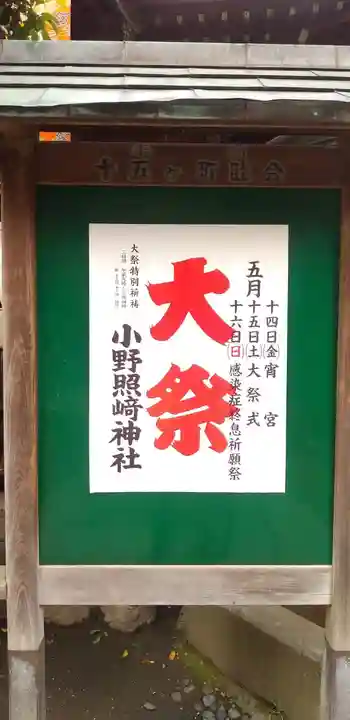 十五ヶ町睦会
十四日(金)宵宮
五月十五日(土)大祭式
十六日(日)感染症終息祈願祭
大祭
大祭特別祈祷
小野照崎神社